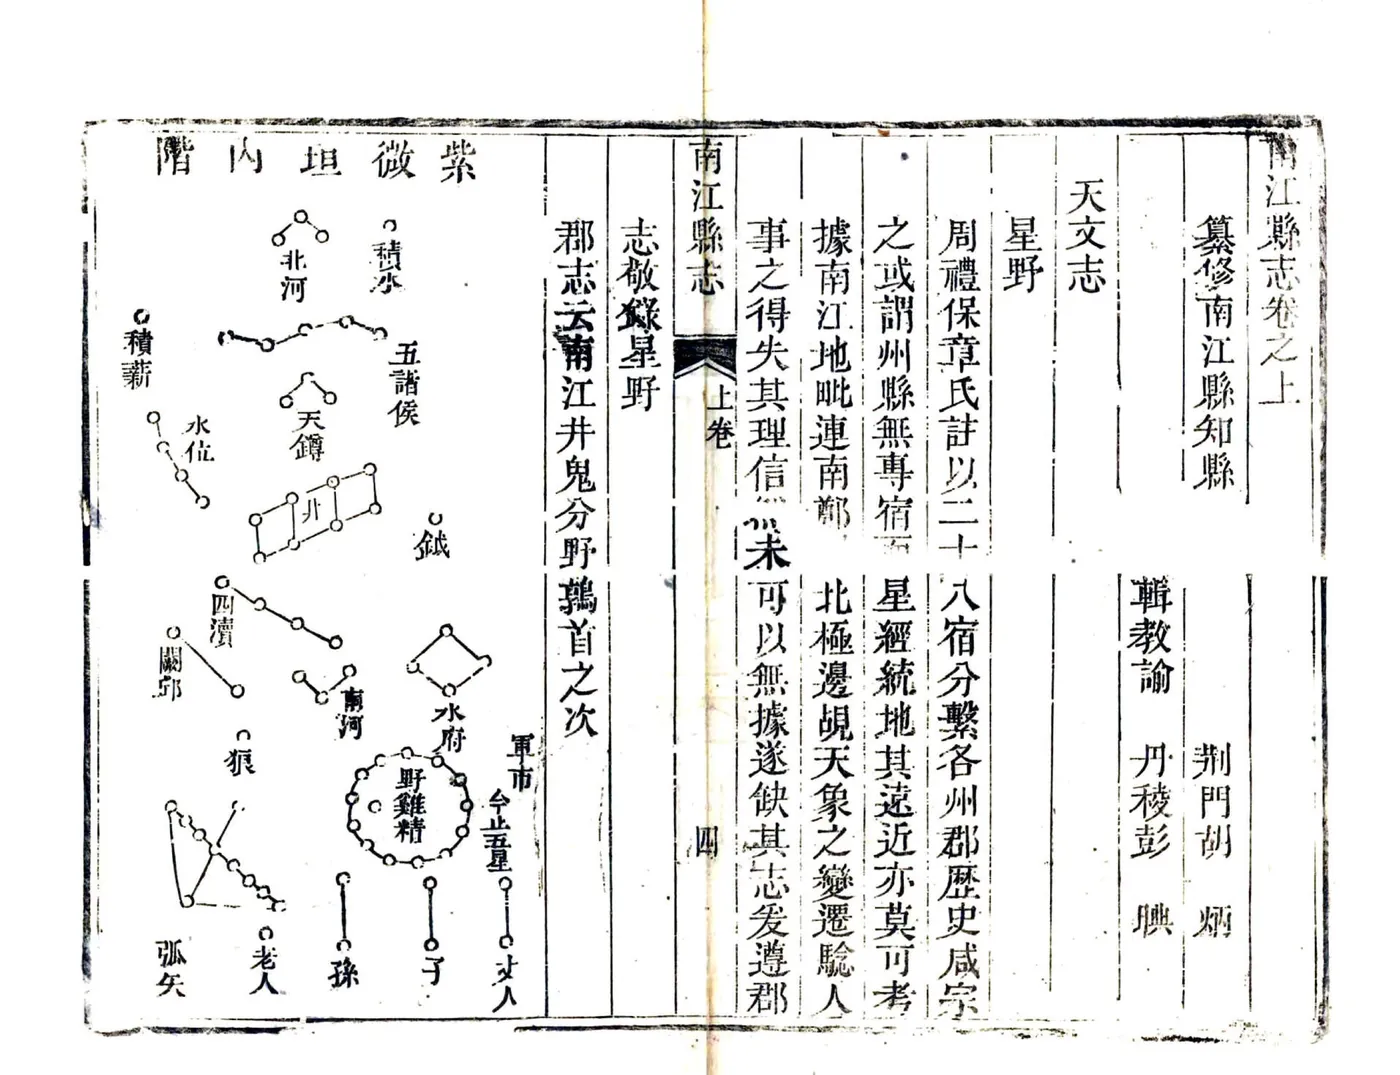 南江縣志卷之上
纂修南江縣知縣 荆門胡 炳
輯教諭 丹稜彭 興
天文志
星野
周禮保章氏註以二十八宿分繫各州郡歷史咸宗
之或謂州縣無專宿而星經統地其遠近亦莫可考
據南江地毗連南鄭北極邊覘天象之變遷驗人
事之得失其理信然未可以無據遂缺其志爰遵郡
南江縣志 上卷 四
志敬錄星野
郡志云南江井鬼分野鶉首之次
紫微垣內階
積水
北河
五諸侯
積薪
天鐏
水位
井
鉞
四瀆
闕邱
南河
水府
狼
軍市
今止五星
野雞精
弧矢
老人
孫
子
丈人